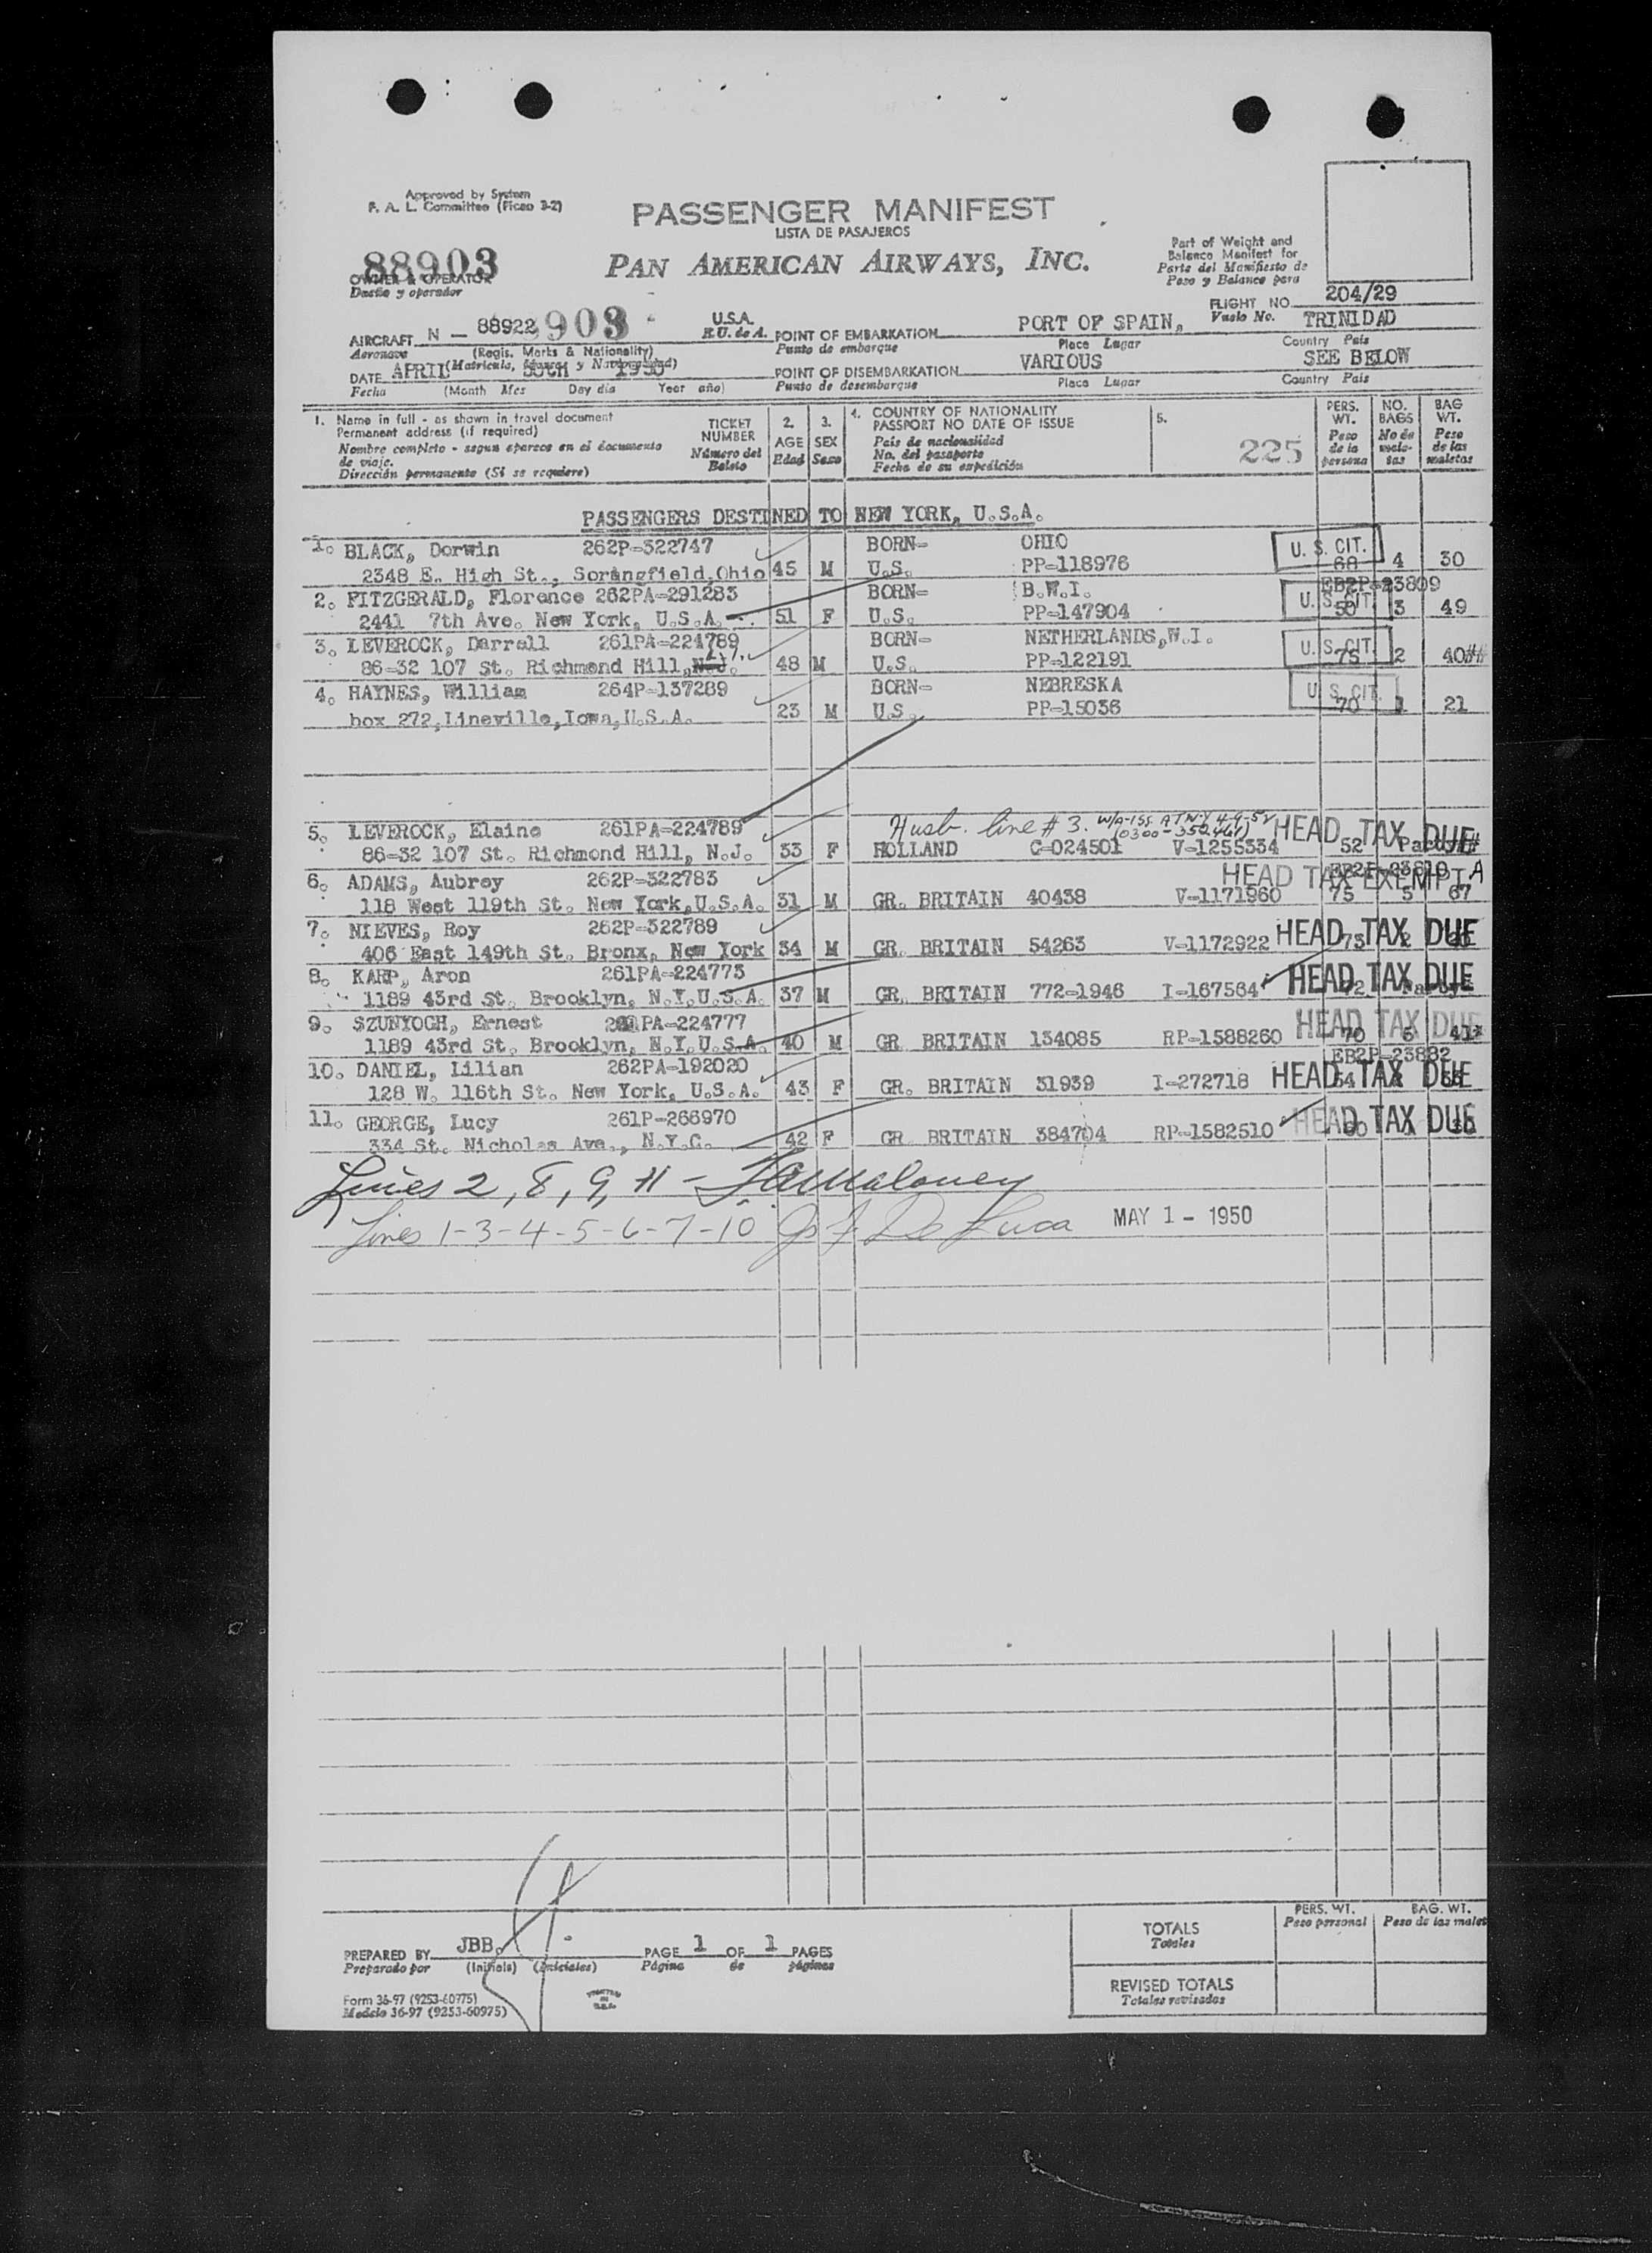 Approved by System
F. A. L. Committee (Ficao 3-2)
PASSENGER MANIFEST
LISTA DE PASAJEROS
PAN AMERICAN AIRWAYS, INC.
88903
OWNER & OPERATOR
Dueño y operador
Part of Weight and
Balance Manifest for
Parte del Manifiesto de
Peso y Balance para
FLIGHT NO. 204/29
Vuelo No.
AIRCRAFT N - 88922 903 U.S.A.
Aeronave (Regis. Marks & Nationality) E.U. de A.
POINT OF EMBARKATION PORT OF SPAIN, TRINIDAD
Punto de embarque Place Lugar Country Pais
DATE APRIL 30th 1950
Fecha (Month Mes Day dia Year año)
POINT OF DISEMBARKATION VARIOUS SEE BELOW
Punto de desembarque Place Lugar Country Pais
1. Name in full - as shown in travel document
Permanent address (if required)
Nombre completo - segun aparece en el documento
de viaje.
Dirección permanente (Si se requiere)
TICKET
NUMBER
Número del
Boleto
2.
AGE
Edad
3.
SEX
Sexo
4. COUNTRY OF NATIONALITY
PASSPORT NO DATE OF ISSUE
País de nacionalidad
No. del pasaporte
Fecha de su expedición
5.
225
PERS.
WT.
Peso
de la
persona
NO.
BAGS
No de
male-
tas
BAG
WT.
Peso
de las
maletas
PASSENGERS DESTINED TO NEW YORK, U.S.A.
1. BLACK, Dorwin 262P-322747 BORN- OHIO U. S. CIT.
2348 E. High St., Sorangfield,Ohio 45 M U.S. PP-118976 68 4 30
2. FITZGERALD, Florence 262PA-291283 BORN- B.W.I. EB2P-23809
2441 7th Ave. New York, U.S.A. 51 F U.S. PP-147904 U. S. CIT. 50 3 49
3. LEVEROCK, Darrell 261PA-224789 BORN- NETHERLANDS,W.I. U. S. CIT.
86-32 107 St. Richmond Hill, N.J. 48 M U.S. PP-122191 75 2 40##
4. HAYNES, William 264P-137289 BORN- NEBRESKA U. S. CIT.
box 272,Lineville,Iowa,U.S.A. 23 M U.S. PP-15036 70 1 21
Husb. line # 3. W/A-155 AT N.Y 4-9-52
(0300-350,461)
5. LEVEROCK, Elaine 261PA-224789 HEAD TAX DUE
86-32 107 St. Richmond Hill, N.J. 33 F HOLLAND C-024501 V-1255334 52
6. ADAMS, Aubrey 262P-322783 HEAD TAX EXEMPT A
118 West 119th St. New York,U.S.A. 31 M GR. BRITAIN 40438 V-1171960 75 5 67
7. NIEVES, Roy 262P-322789
406 East 149th St. Bronx, New York 34 M GR. BRITAIN 54263 V-1172922 HEAD TAX DUE 75 2
8. KARP, Aron 261PA-224773
1189 43rd St. Brooklyn, N.Y.U.S.A. 37 M GR. BRITAIN 772-1946 I-167564 HEAD TAX DUE 72
9. SZUNYOGH, Ernest PA-224777
1189 43rd St. Brooklyn, N.Y.U.S.A. 40 M GR. BRITAIN 134085 RP-1588260 HEAD TAX DUE 70 5 41
10. DANIEL, Lilian 262PA-192020 EB2P-23882
128 W. 116th St. New York, U.S.A. 43 F GR. BRITAIN 31939 I-272718 HEAD TAX DUE 54
11. GEORGE, Lucy 261P-266970
334 St. Nicholas Ave., N.Y.C. 42 F GR. BRITAIN 384704 RP-1582510 HEAD TAX DUE 60
Lines 2, 8, 9, 11 - Maloney
Lines 1-3-4-5-6-7-10 De Luca MAY 1 - 1950
PREPARED BY JBB
Preparado por (Initials) (Iniciales)
PAGE 1 OF 1 PAGES
Página de páginas
Form 36-97 (9253-60975)
Modelo 36-97 (9253-60975)
PRINTED
IN
U.S.A.
PERS. WT.
Peso personal
BAG. WT.
Peso de las malet
TOTALS
Totales
REVISED TOTALS
Totales revisados